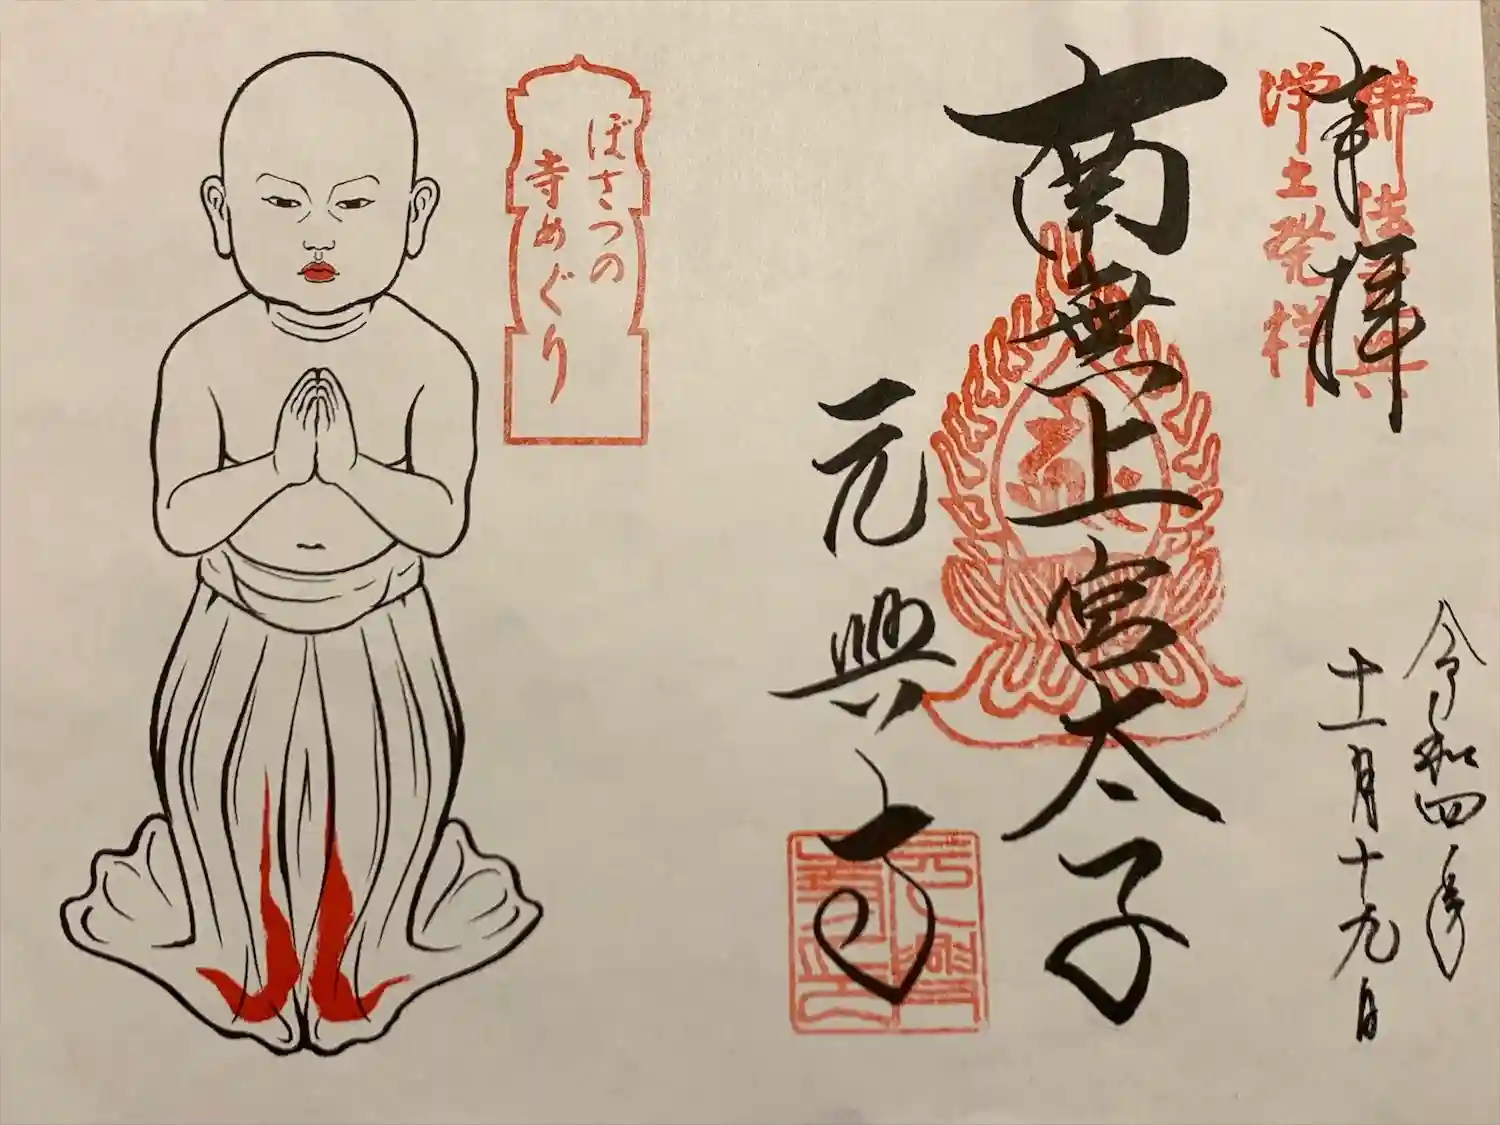 奉拝
佛法元興
浄土発祥
令和四年
十一月十九日
南無上宮太子
元興寺
ぼさつの
寺めぐり